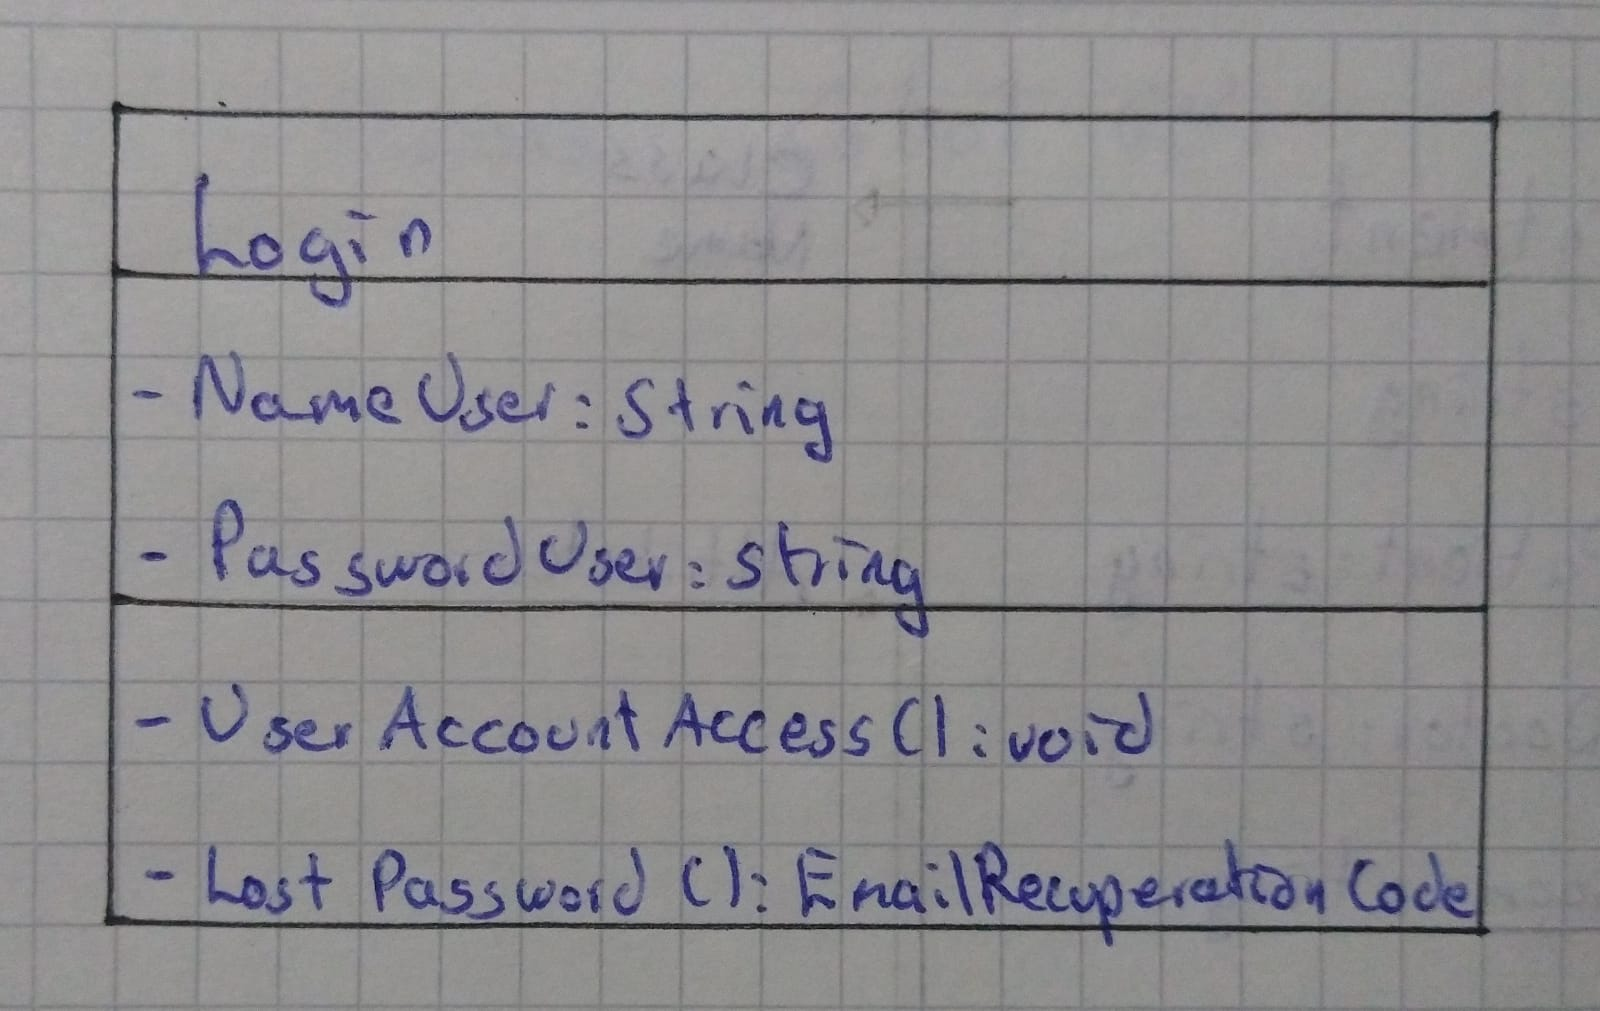 Login
- NameUser: String
- PasswordUser: string
- User Account Access(): void
- Lost Password (): EmailRecuperation Code